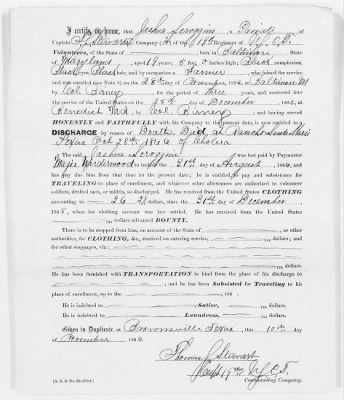 I certify, on honor, that Joshua Scroggins a Private
Captain T. Stewart's Company (A) of the 19th Regiment of U.S.C.T.
Volunteers, of the State of , born in Baltimore State
of Maryland, aged 19 years; 5 feet 0 inches high; Black complexion,
Black eyes, Black hair, and by occupation a Farmer, who joined the service
and was enrolled (See Note 1) on the 28th day of November, 1863, at Baltimore Md
by Col Barney for the period of three years, and mustered
into the service of the United States on the 25th day of December, 1863, at
Benedict Md, by Col Barney; and having served
HONESTLY and FAITHFULLY with his Company to the present date, is now entitled to a
DISCHARGE by reason of Death. Died at Rancho Santa Maria
Texas Oct 28th 1866 of Cholera
The said Joshua Scroggins was last paid by Paymaster
Major to include the 31st day of August, 1866, and
has pay due him from that time to the present date; he is entitled to pay and subsistence for
TRAVELING to place of enrollment, and whatever other allowances are authorized to volunteer
soldiers, drafted men, or militia, so discharged. He has received from the United States CLOTHING
amounting to 36 dollars, since the 31st day of December,
1865, when his clothing account was last settled. He has received from the United
States dollars advanced BOUNTY.
There is to be stopped from him, on account of the State of , or other
authorities, for CLOTHING, &c., received on entering service, dollars; and
for other stoppages, viz:
dollars.
He has been furnished with TRANSPORTATION in kind from the place of his discharge to
; and he has been Subsisted for Traveling to his
place of enrollment, up to the , 186 .
He is indebted to , Sutler, dollars.
He is indebted to , Laundress, dollars.
Given in Duplicate at Brownsville Texas, this 10th day of
November 1866.
Thomas Stewart
Capt 19th U.S.C.T.
Commanding Company.